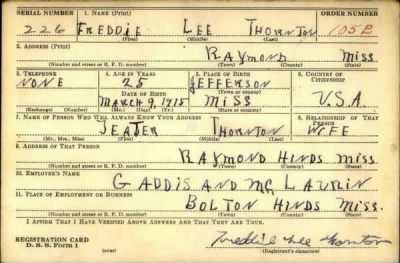 SERIAL NUMBER 1. NAME (Print) ORDER NUMBER
226 FREDDIE LEE THORNTON 105B
(First) (Middle) (Last)
2. ADDRESS (Print)
RAYMOND MISS.
(Number and street or R. F. D. number) (Town) (County) (State)
3. TELEPHONE 4. AGE IN YEARS 5. PLACE OF BIRTH 6. COUNTRY OF CITIZENSHIP
NONE 25 JEFFERSON
DATE OF BIRTH (Town) (County)
MARCH 9, 1915 MISS U.S.A.
(Exchange) (Number) (Mo.) (Day) (Yr.) (State or country)
7. NAME OF PERSON WHO WILL ALWAYS KNOW YOUR ADDRESS 8. RELATIONSHIP OF THAT PERSON
JEATER THORNTON WIFE
(Mr., Mrs., Miss) (First) (Middle) (Last)
9. ADDRESS OF THAT PERSON
RAYMOND HINDS MISS.
(Number and street or R. F. D. number) (Town) (County) (State)
10. EMPLOYER'S NAME
GADDIS AND MC LAURIN
11. PLACE OF EMPLOYMENT OR BUSINESS
BOLTON HINDS MISS.
(Number and street or R. F. D. number) (Town) (County) (State)
I AFFIRM THAT I HAVE VERIFIED ABOVE ANSWERS AND THAT THEY ARE TRUE.
REGISTRATION CARD
D. S. S. Form 1 (over) Freddie Lee Thornton
(Registrant's signature)